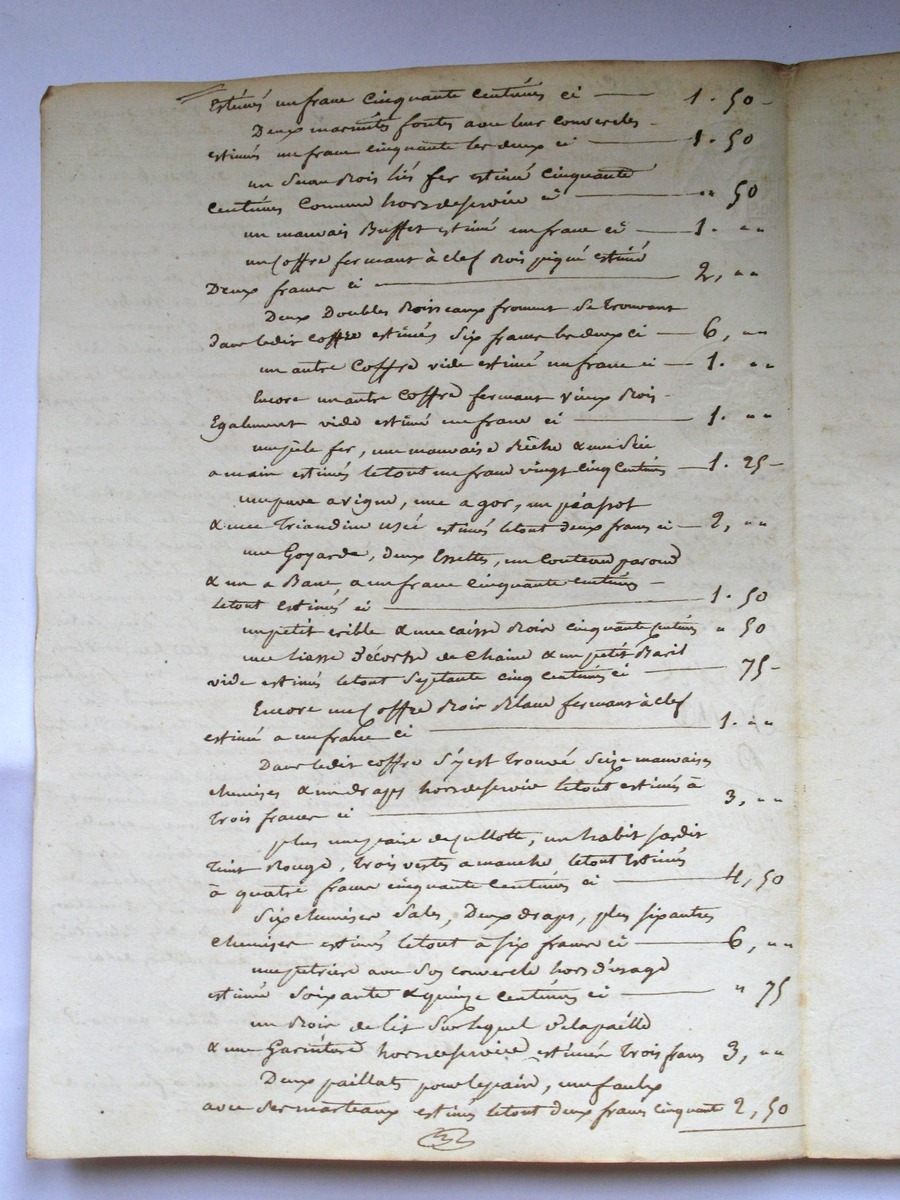 Estimés un franc Cinquante Centimes ci — 1 . 50 -
Deux marmites fontes avec leur couvercles -
estimés un franc cinquante les deux ci — 1 . 50
un Seau Bois liés fer estimé Cinquante
Centimes Comme hors de service ci — " 50
un mauvais Buffet estimé un franc ci — 1 . " "
un Coffre fermant à clef Bois piqué estimé
Deux francs ci — 2, " "
Deux Doubles Boisseaux froment se trouvant
dans ledit coffre estimés six francs les deux ci — 6, " "
un autre Coffre vide estimé un franc ci — 1 . " "
Encore un autre Coffre fermant vieux Bois -
Egalement vide estimé un franc ci — 1 . " "
une pele fer, une mauvaise Bêche & une Scie
a main estimés le tout un franc vingt cinq Centimes — 1 . 25 -
une a vigne, une a gor, un
& une Triandine usée estimés le tout deux francs ci — 2, " "
une Goyarde, deux Essettes, un Couteau paroud
& un a Banc a un franc cinquante centimes -
le tout estimés ci — 1 . 50
un petit crible & une caisse Bois cinquante centimes " 50
une liasse d'écorse de Chaine & un petit Baril
vide estimés le tout Septante cinq Centimes ci — 75 -
Encore un Coffre Bois Blanc fermant à clef
estimé a un franc ci — 1 . " "
Dans ledit coffre s'y est trouvé Seize mauvaises
chemises & un draps hors de service le tout estimés à
trois francs ci — 3, " "
plus une paire de cullotte, un habit jardit
Teint Rouge, trois vestes a manche le tout Estimés
à quatre francs cinquante Centimes ci — 4, 50
Six chemises Sales, Deux draps, plus six autres
Chemises estimés le tout à six francs ci — 6, " "
une petriere avec Son couvercle hors d'usage
estimée Soixante & quinze Centimes ci — " 75
un Bois de lit Sur lequel de la paille
& une Garniture hors de service estimée trois francs 3, " "
Deux paillats pour le pain, une faulx
avec Ses marteaux estimés le tout deux francs cinquante 2, 50